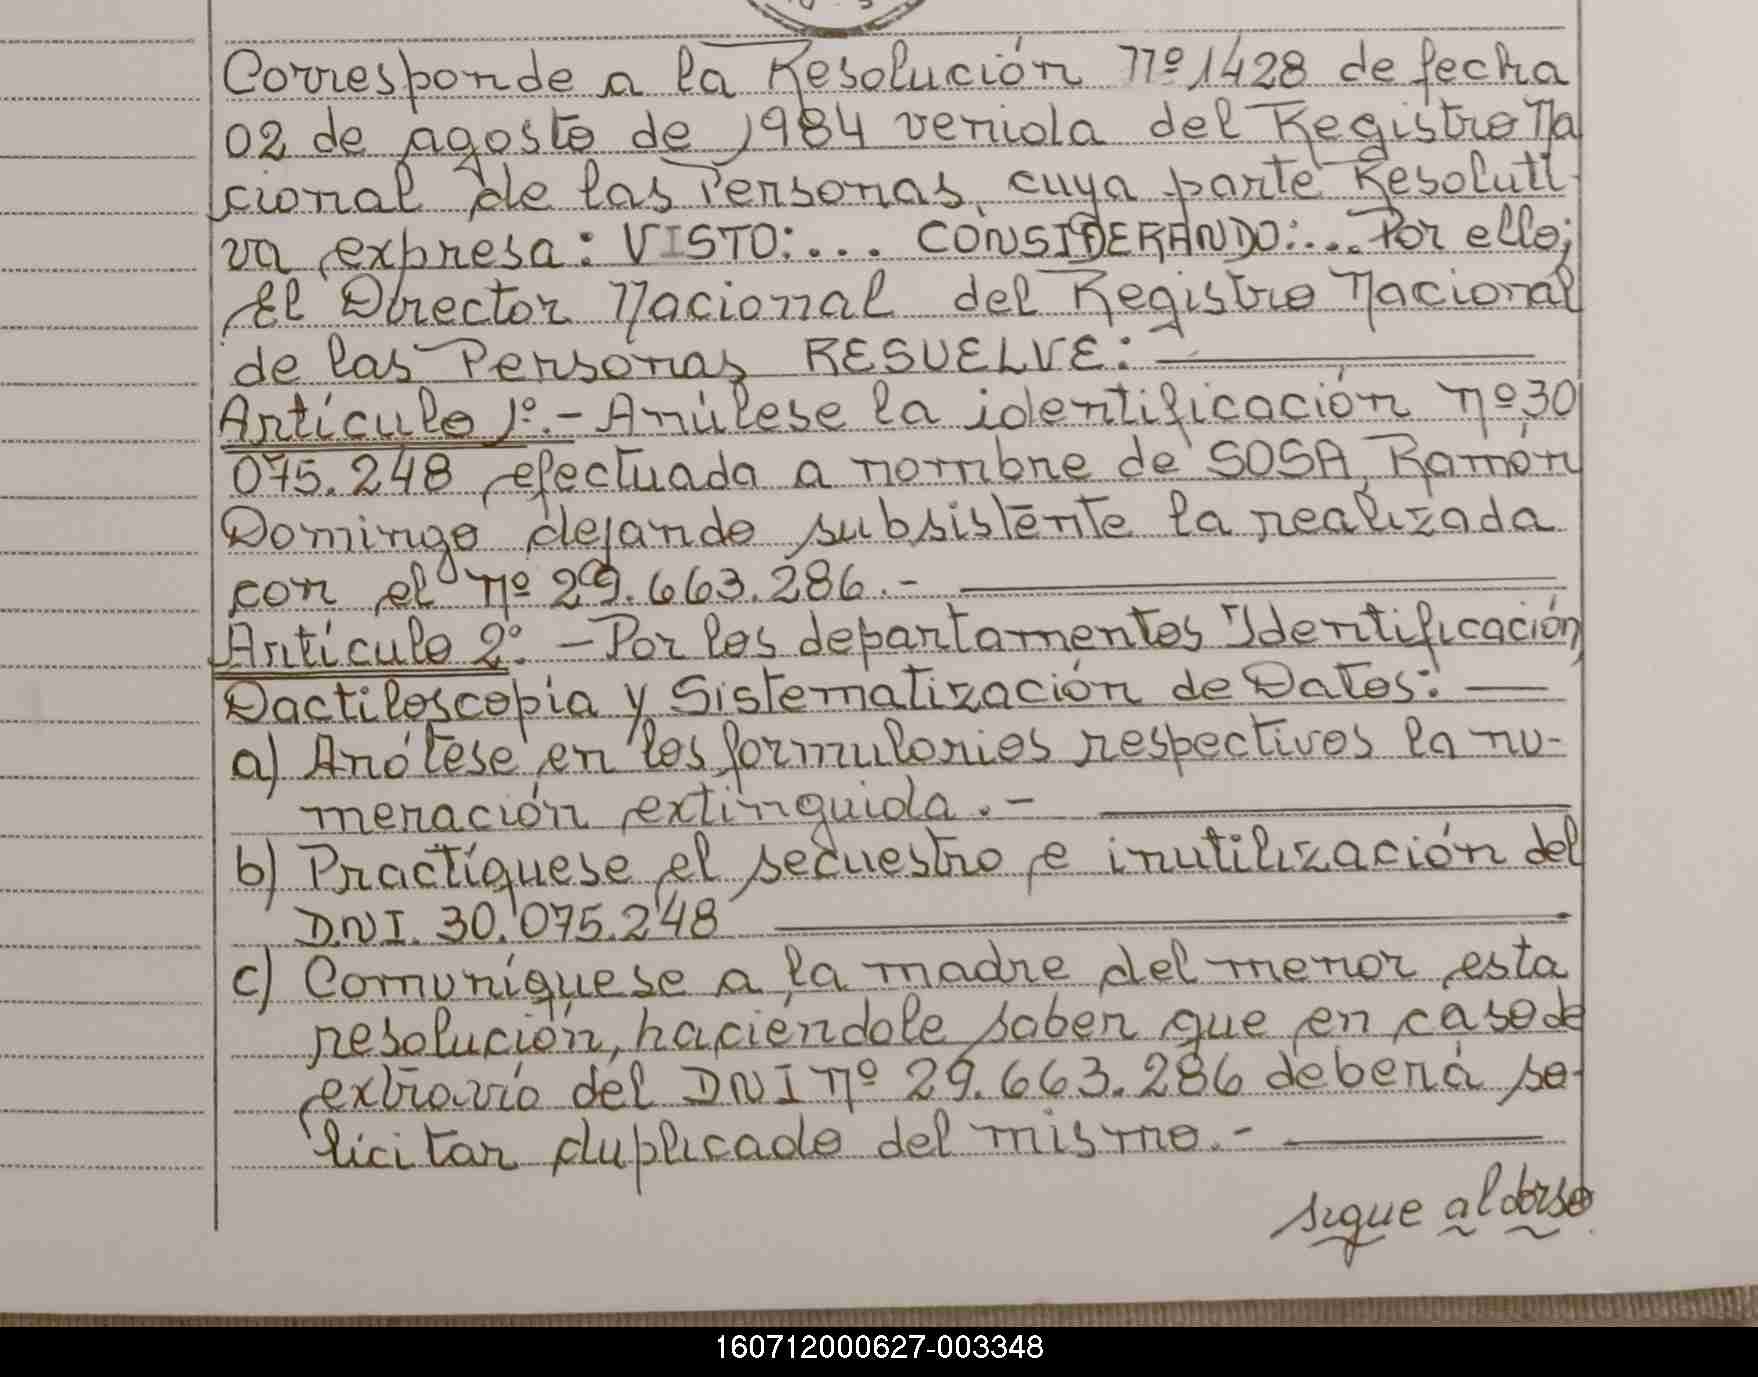 Corresponde a la Resolución nº 1428 de fecha
02 de agosto de 1984 venida del Registro Na
cional de las Personas, cuya parte Resoluti
va expresa: VISTO:... CONSIDERANDO:... Por ello;
El Director Nacional del Registro Nacional
de las Personas RESUELVE:
Artículo 1º.- Anúlese la identificación nº 30
075.248 efectuada a nombre de SOSA, Ramón
Domingo dejando subsistente la realizada
con el nº 29.663.286.-
Artículo 2º.- Por los departamentos Identificación
Dactiloscopia y Sistematización de Datos:
a) Anótese en los formularios respectivos la nu-
meración extinguida.-
b) Practíquese el secuestro e inutilización del
DNI. 30.075.248
c) Comuníquese a la madre del menor esta
resolución, haciéndole saber que en caso de
extravío del DNI nº 29.663.286 deberá so-
licitar duplicado del mismo.-
sigue al dorso
160712000627-003348